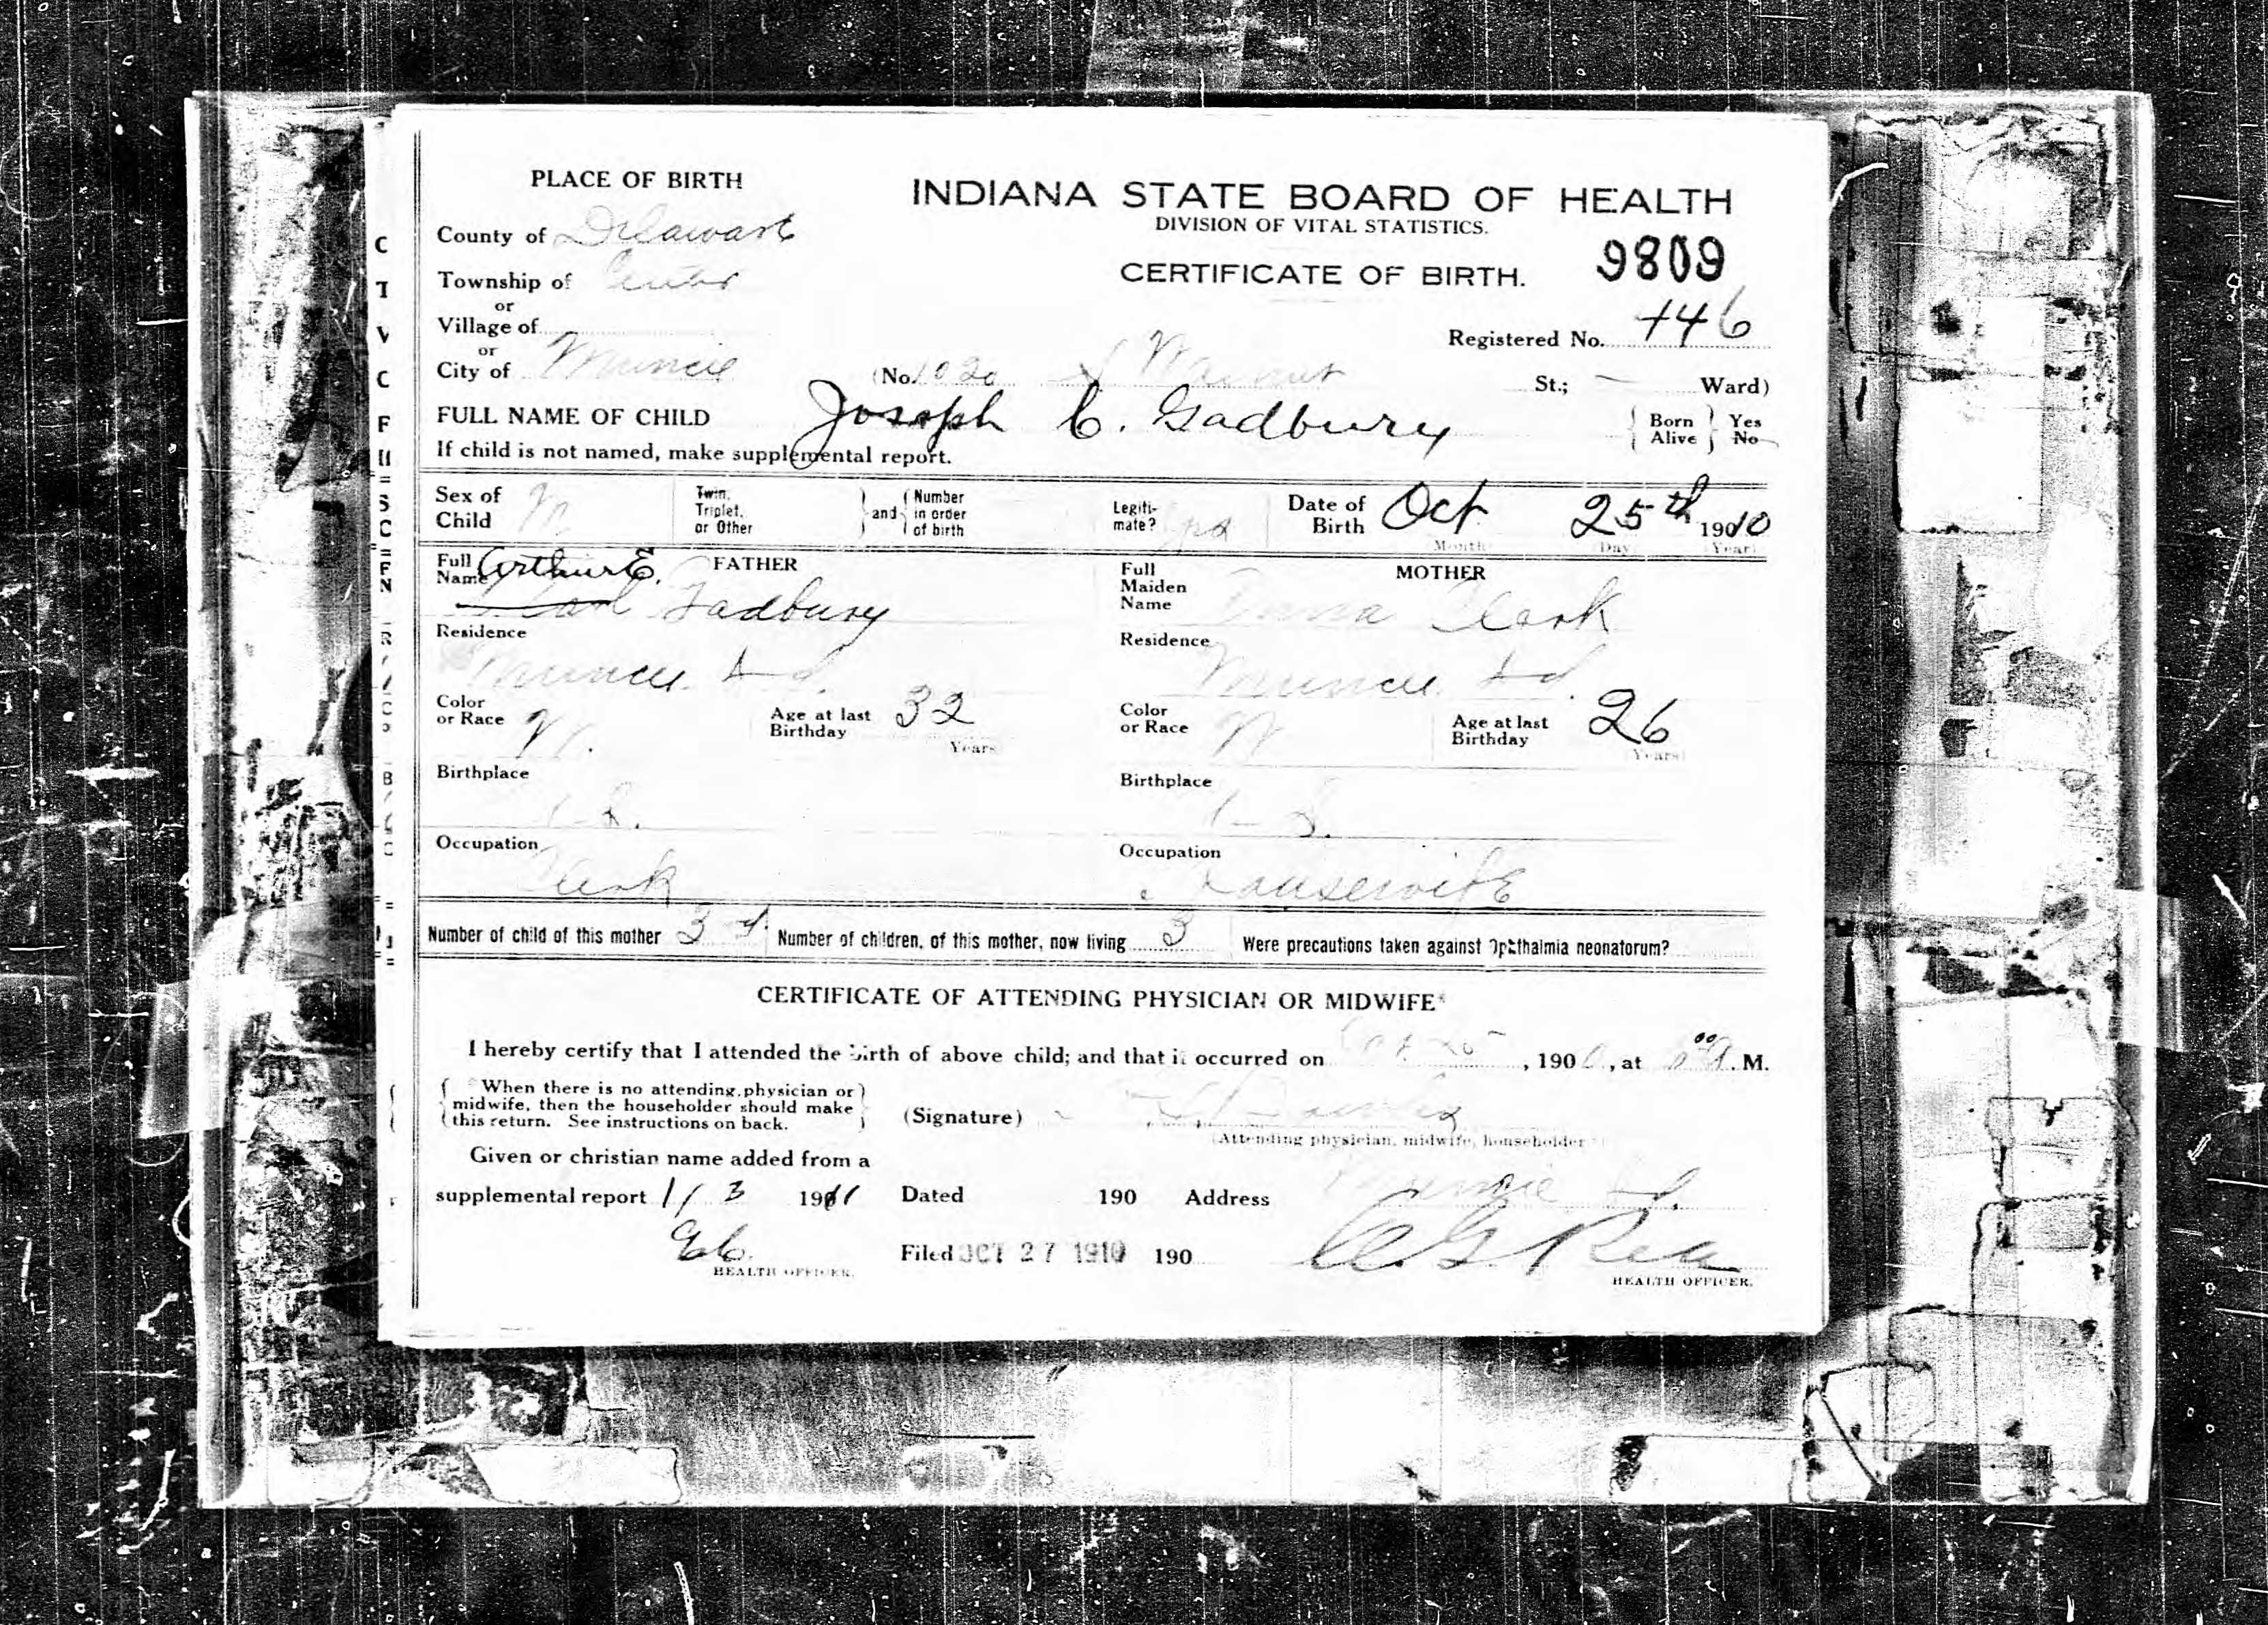 PLACE OF BIRTH
INDIANA STATE BOARD OF HEALTH
DIVISION OF VITAL STATISTICS.
County of Delaware
CERTIFICATE OF BIRTH. 9809
Township of Center
or
Village of
Registered No. 446
or
City of Muncie (No. 1020 S Walnut St.; — Ward)
FULL NAME OF CHILD Joseph C. Gadbury { Born Alive } Yes No
If child is not named, make supplemental report.
Sex of Child M Twin, Triplet, or Other } and { Number in order of birth Legiti-mate? yes Date of Birth Oct 25th 1910
Month Day (Year)
Full Name Arthur E. FATHER
Gadbury
Full Maiden Name MOTHER
Clark
Residence
Muncie Ind.
Residence
Muncie Ind.
Color or Race W. Age at last Birthday 32 Years
Color or Race W Age at last Birthday 26 (Years)
Birthplace
U.S.
Birthplace
U.S.
Occupation
Clerk
Occupation
Housewife
Number of child of this mother 3d Number of children, of this mother, now living 3 Were precautions taken against Ophthalmia neonatorum?
CERTIFICATE OF ATTENDING PHYSICIAN OR MIDWIFE*
I hereby certify that I attended the birth of above child; and that it occurred on Oct 25, 190 , at M.
{ When there is no attending physician or midwife, then the householder should make this return. See instructions on back. }
(Signature)
(Attending physician, midwife, householder)
Given or christian name added from a
supplemental report 1/3 1911 Dated 190 Address Muncie Ind.
Filed OCT 27 1910 190
HEALTH OFFICER.
HEALTH OFFICER.